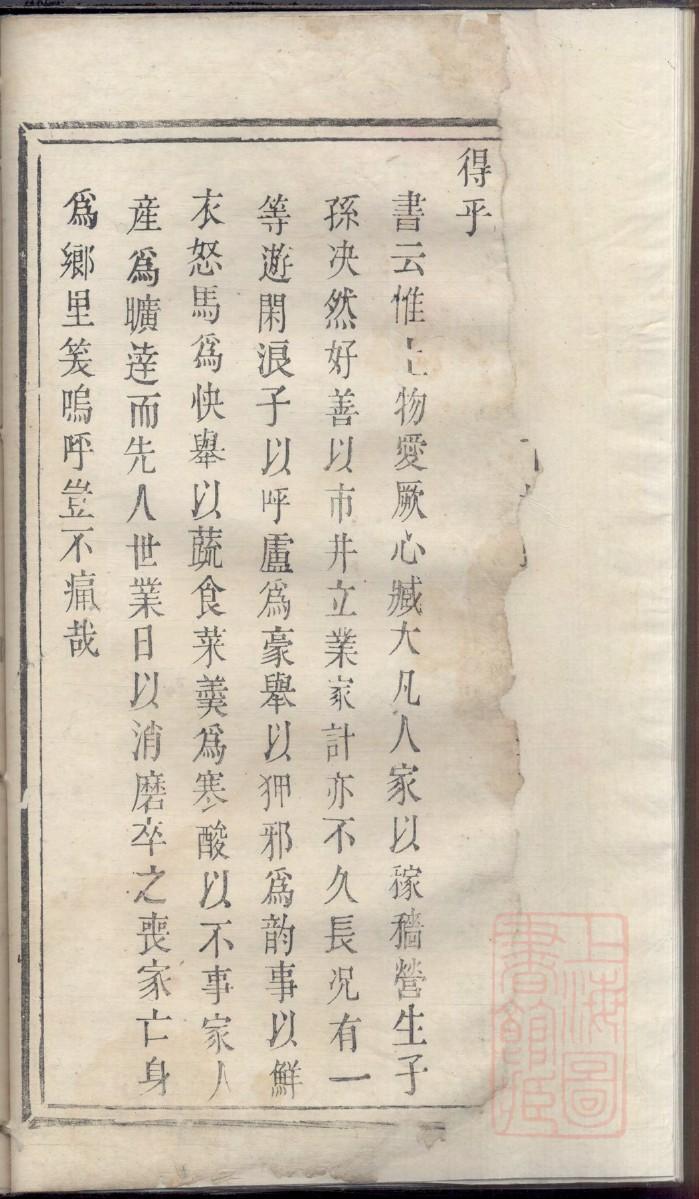 得乎
書云惟土物愛厥心臧大凡人家以稼穡營生子
孫决然好善以市井立業家計亦不久長况有一
等遊閑浪子以呼盧爲豪舉以狎邪爲韵事以鮮
衣怒馬爲快舉以蔬食菜羹爲寒酸以不事家人
産爲曠達而先人世業日以消磨卒之喪家亡身
爲鄉里笑嗚呼豈不痛哉
上海圖
書館藏